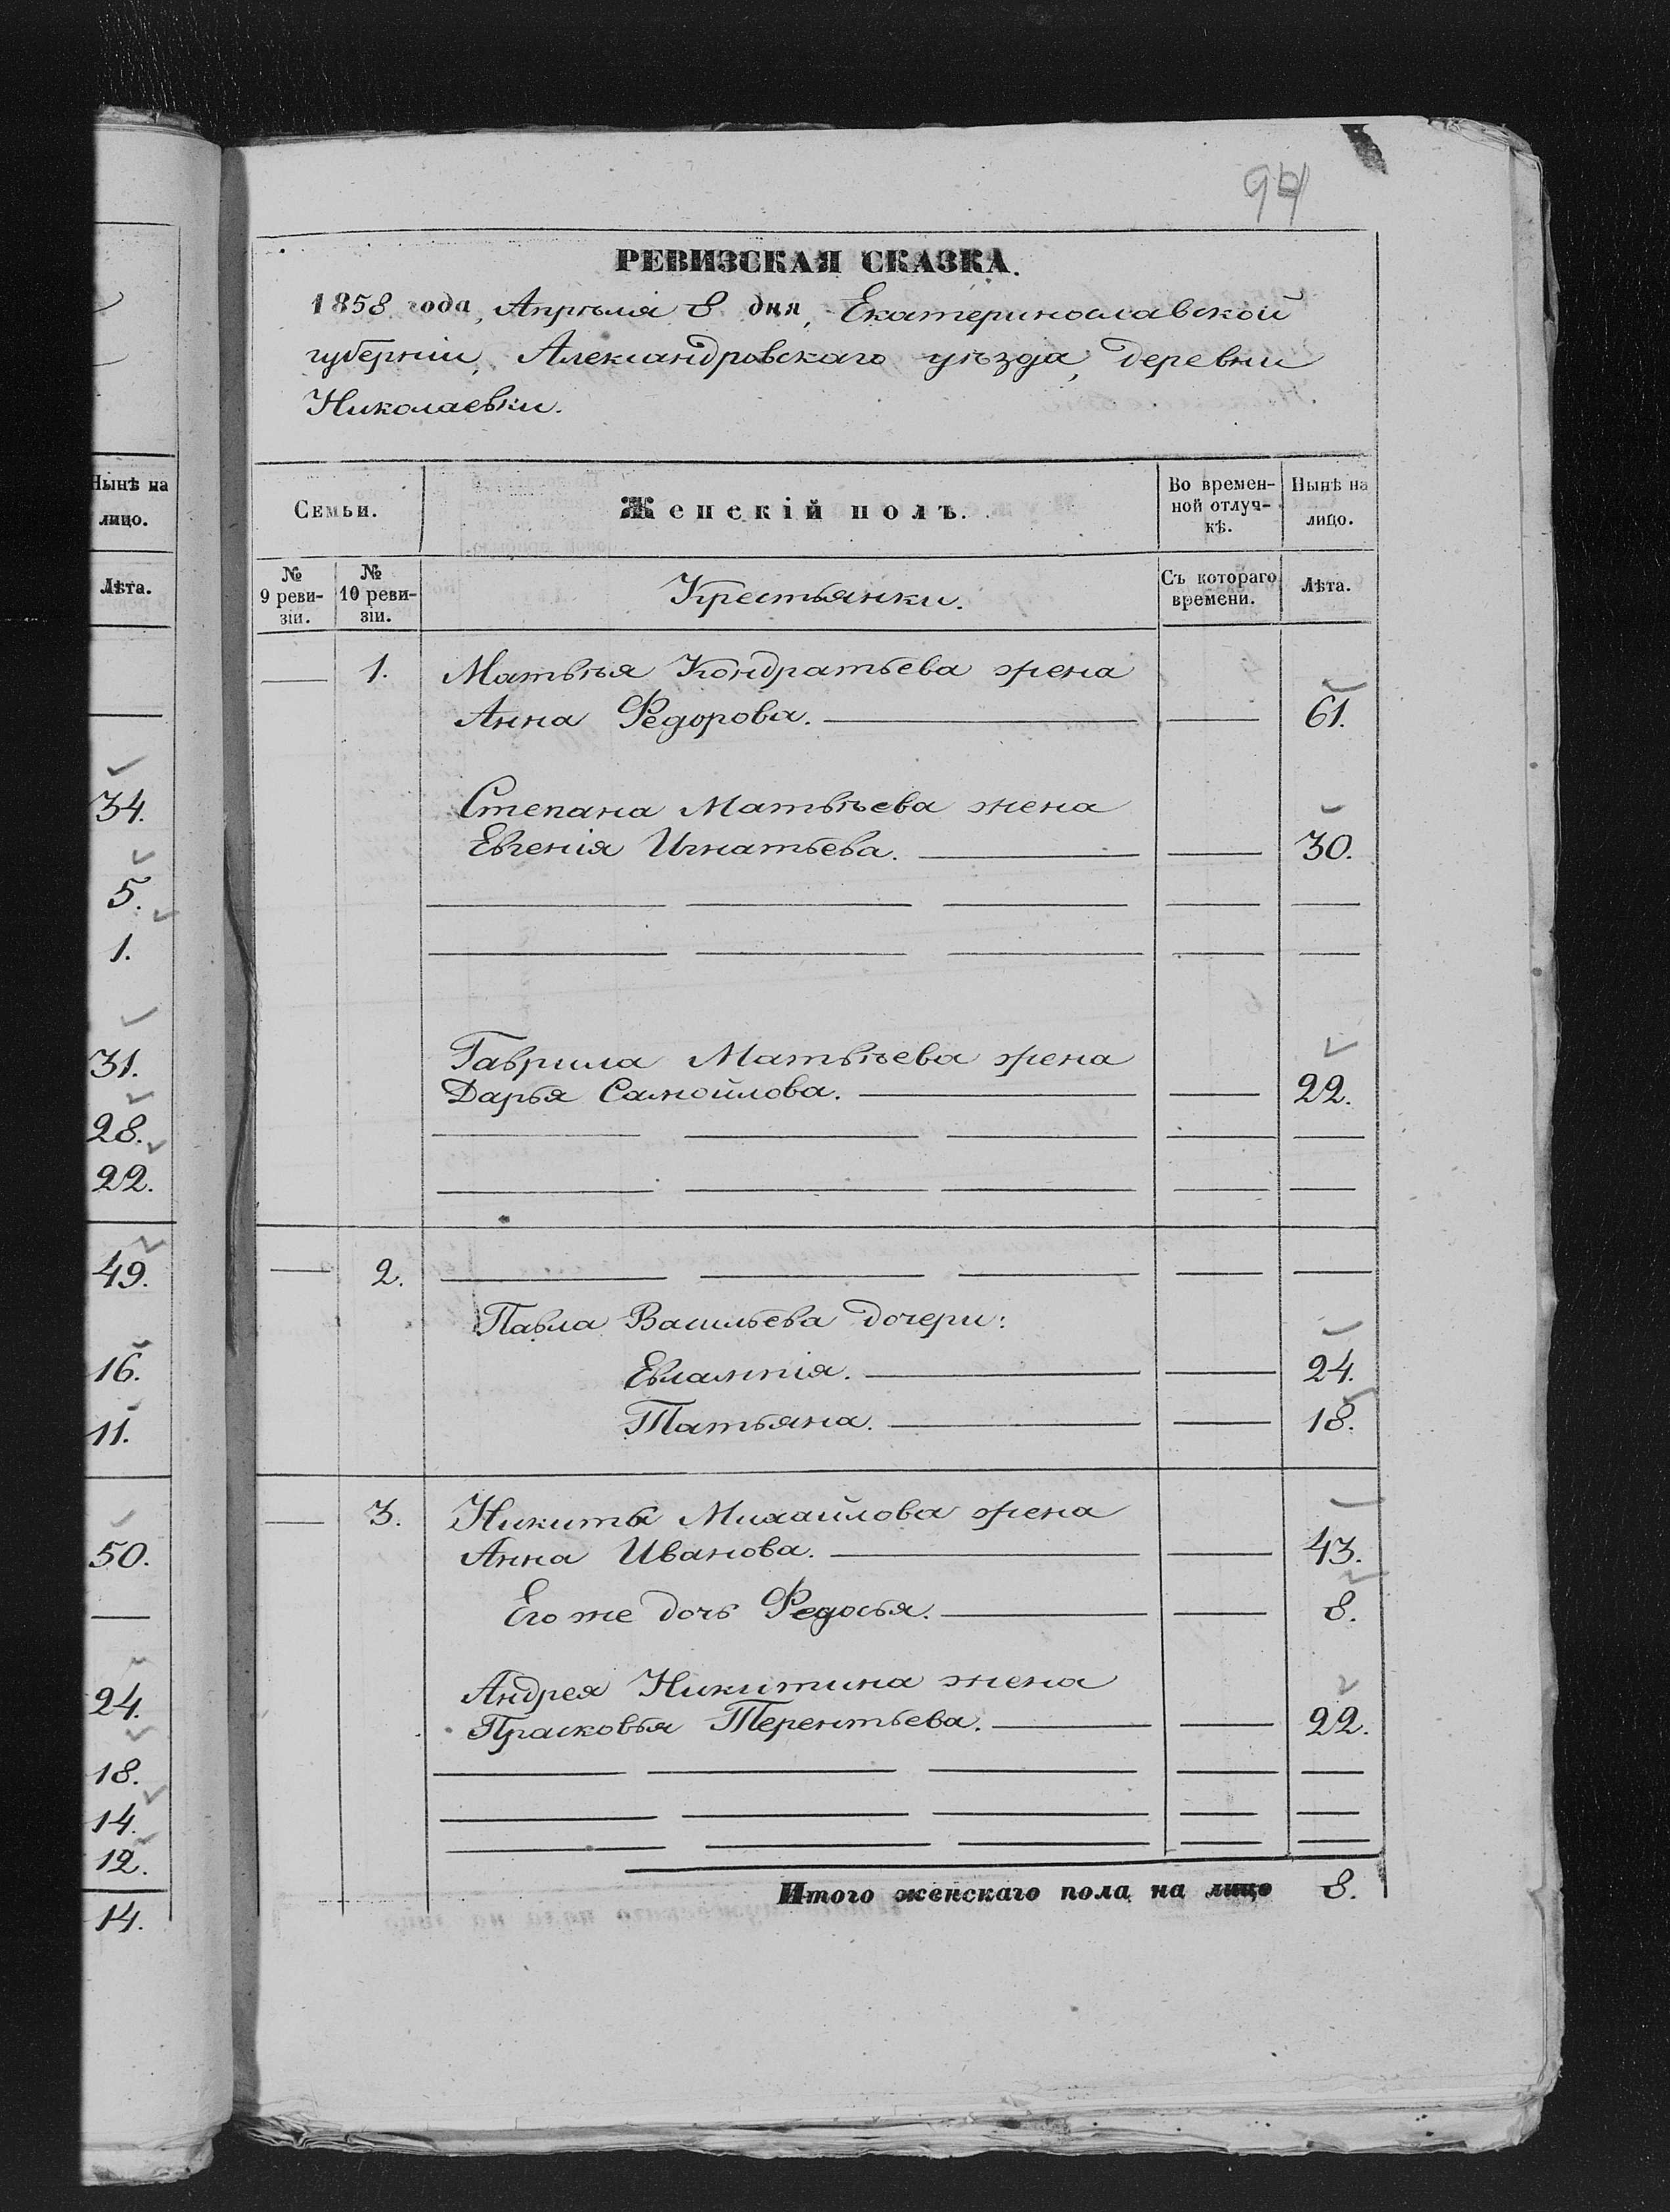 94
РЕВИЗСКАЯ СКАЗКА.
1858 года, Апрѣля 8 дня, Екатеринославской
губерніи, Александровскаго уѣзда, деревни
Николаевки.
Нынѣ на
лицо.
Лѣта.
34.
5.
1.
31.
28.
22.
49.
16.
11.
50.
24.
18.
14.
12.
14.
Семьи.
Женскій полъ.
Во времен-
ной отлуч-
кѣ.
Нынѣ на
лицо.
№
9 реви-
зіи.
№
10 реви-
зіи.
Крестьянки.
Съ котораго
времени.
Лѣта.
1. Матвѣя Кондратьева жена
Анна Федорова. 61.
Степана Матвѣева жена
Евгенія Игнатьева. 30.
Гаврила Матвѣева жена
Дарья Самойлова. 22.
2.
Павла Васильева дочери:
Евлампія. 24.
Татьяна. 18.
3. Никиты Михайлова жена
Анна Иванова. 43.
Его же дочь Федосья. 8.
Андрея Никитина жена
Прасковья Терентьева. 22.
Итого женскаго пола на лицо 8.